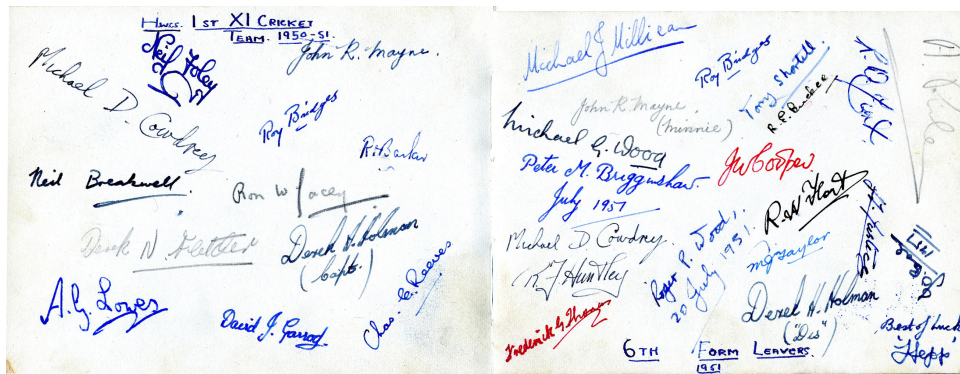 Hwcs. 1ST XI CRICKET
TEAM. 1950-51.
Neil Foley
John R. Mayne.
Michael D. Cowdrey
Roy Bridges
R. Barker
Neil Breakwell.
Ron W Lacey
Derek N. Fletcher
Derek H. Holman
(Capt.)
A.G. Lowes
David J. Garrad
Chas. C. Reeves
Michael J Millican
Roy Bridges
Tony Shortell
John R. Mayne.
(Minnie)
Michael G. Wood
Peter M. Brigginshaw.
July 1951
JW Cooper
Michael D Cowdrey.
R.F. Huntley
Roger P. Wood,
20 July 1951.
Derek H. Holman
("Dis")
Frederick G.
Best of Luck
'Hepp'
6TH FORM LEAVERS.
1951